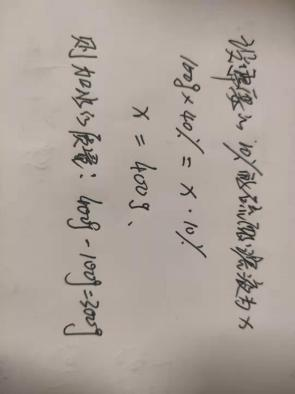 设需要的10%的硫酸溶液为x
100g×40%=x·10%
x=400g、
则加水的质量：400g-100g=300g